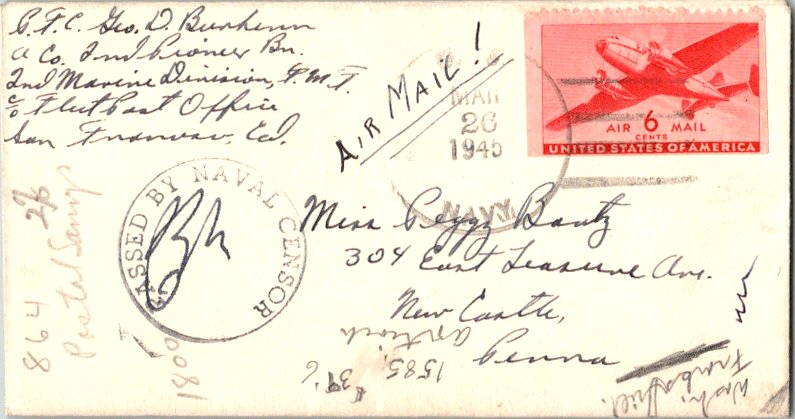 P.F.C. Geo. D. Burkenn
A Co. 2nd Pioneer Bn.
2nd Marine Division, F.M.F.
c/o Fleet Post Office
San Francisco, Cal.
AIR MAIL!
MAR
26
1945
NAVY
AIR 6 MAIL
CENTS
UNITED STATES OF AMERICA
PASSED BY NAVAL CENSOR
Miss Peggy Bautz
304 East Leasure Ave.
New Castle,
Penna
864
26
Postal Savings
1800
1585